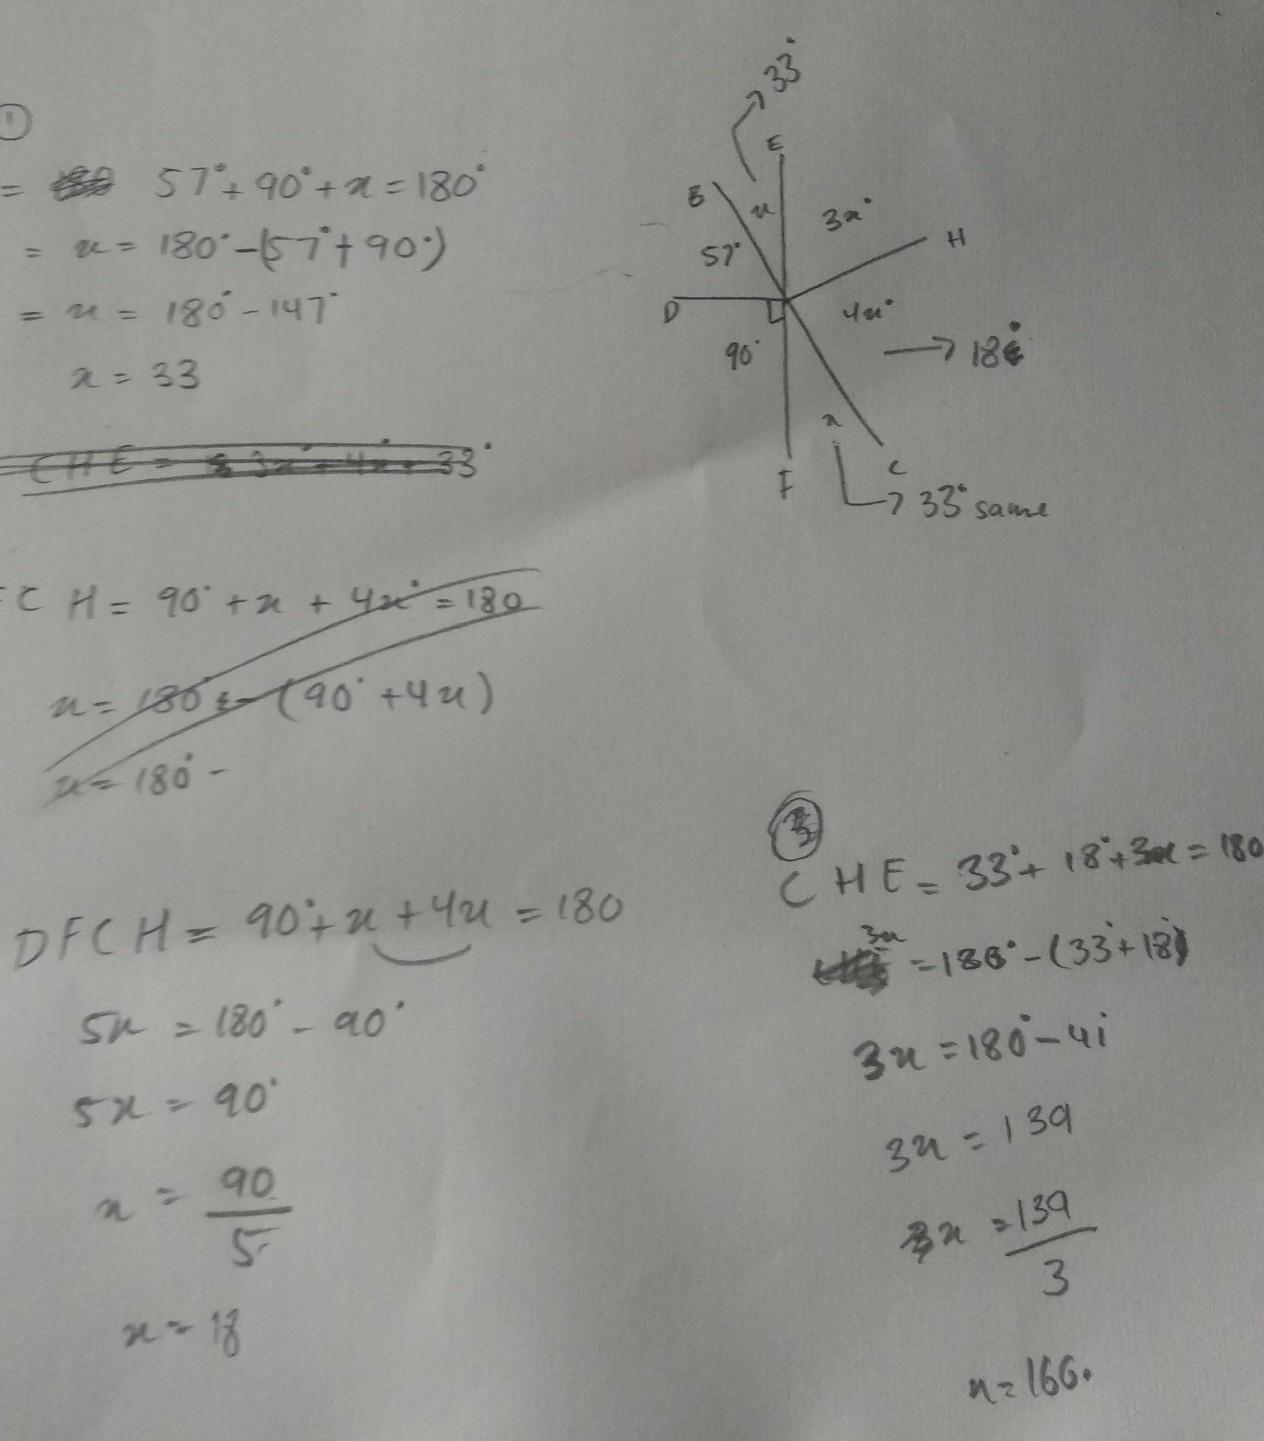 ①
= 57° + 90° + x = 180°
= x = 180° - (57° + 90°)
= x = 180° - 147°
x = 33
CHE = 3x° + 4x + 33°
FCH = 90° + x + 4x° = 180
x = 180° - (90° + 4x)
x = 180° -
DFCH = 90° + x + 4x = 180
5x = 180° - 90°
5x = 90°
x = 90
5
x = 18
33°
E
B
x
3x°
H
57°
D
4x°
90°
→ 18°
x
F
C
33° same
③
CHE = 33° + 18° + 3x = 180
3x = 180° - (33° + 18°)
3x = 180° - 41
3x = 139
3x = 139
3
x = 166.